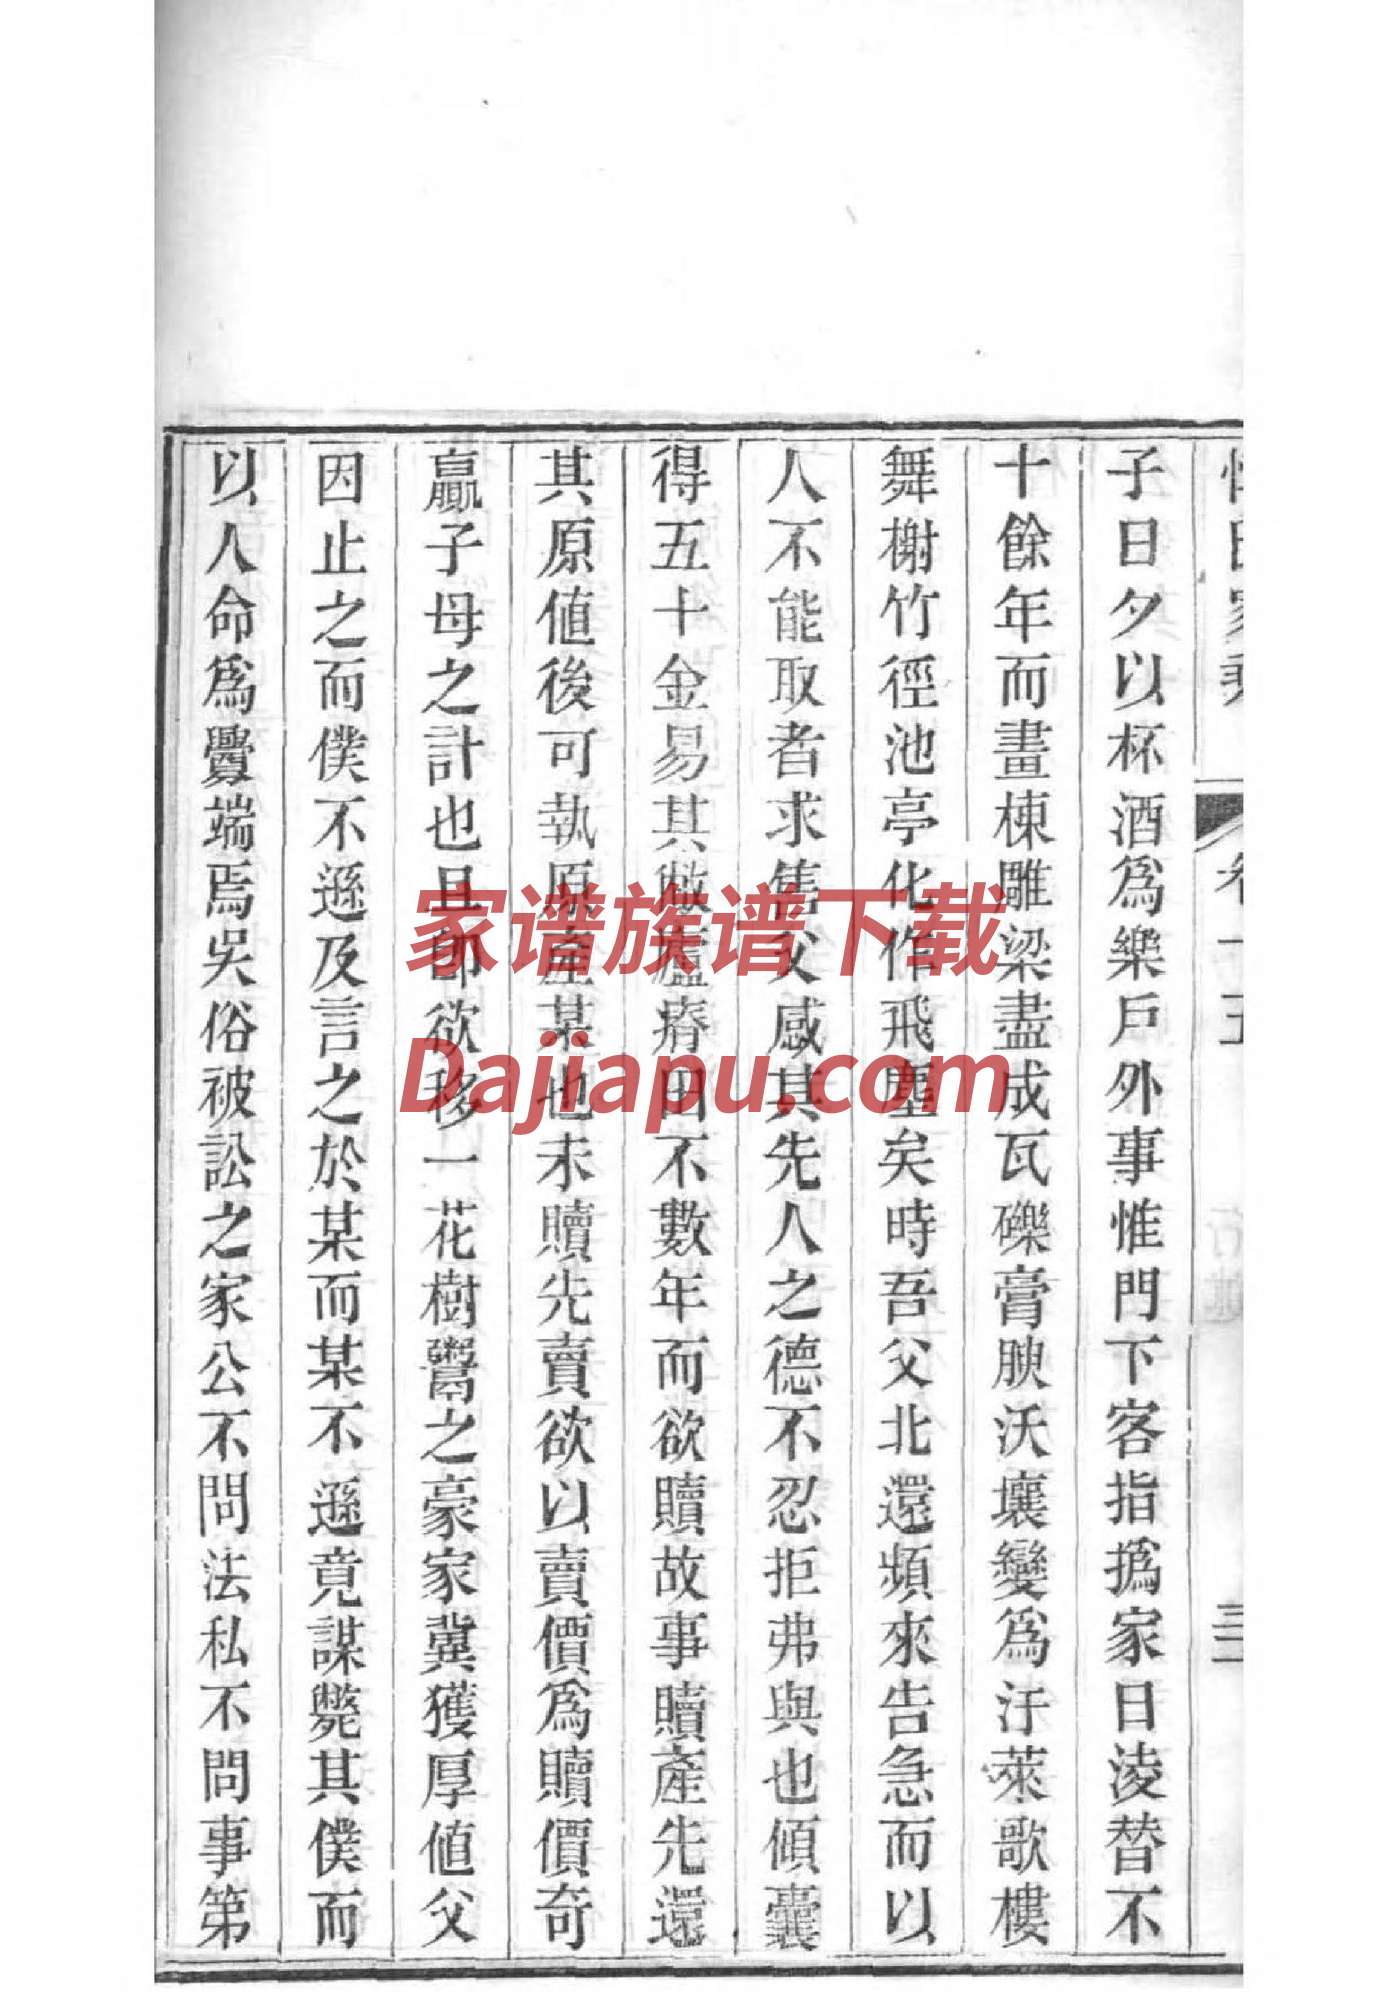 子日夕以杯酒爲樂戶外事惟門下客指撝家日淩替不
十餘年而畫棟雕梁盡成瓦礫膏腴沃壤變爲汙萊歌樓
舞榭竹徑池亭化作飛塵矣時吾父北還頻來告急而以
人不能取者求售父感其先人之德不忍拒弗與也傾囊
得五十金易其敝廬瘠田不數年而欲贖故事贖產先還
其原値後可執原產某也未贖先賣欲以賣價爲贖價奇
贏子母之計也且卽欲移一花樹鬻之豪家冀獲厚値父
因止之而僕不遜及言之於某而某不遜竟謀斃其僕而
以人命爲釁端焉吳俗被訟之家公不問法私不問事第
家谱族谱下载
Dajiapu.com